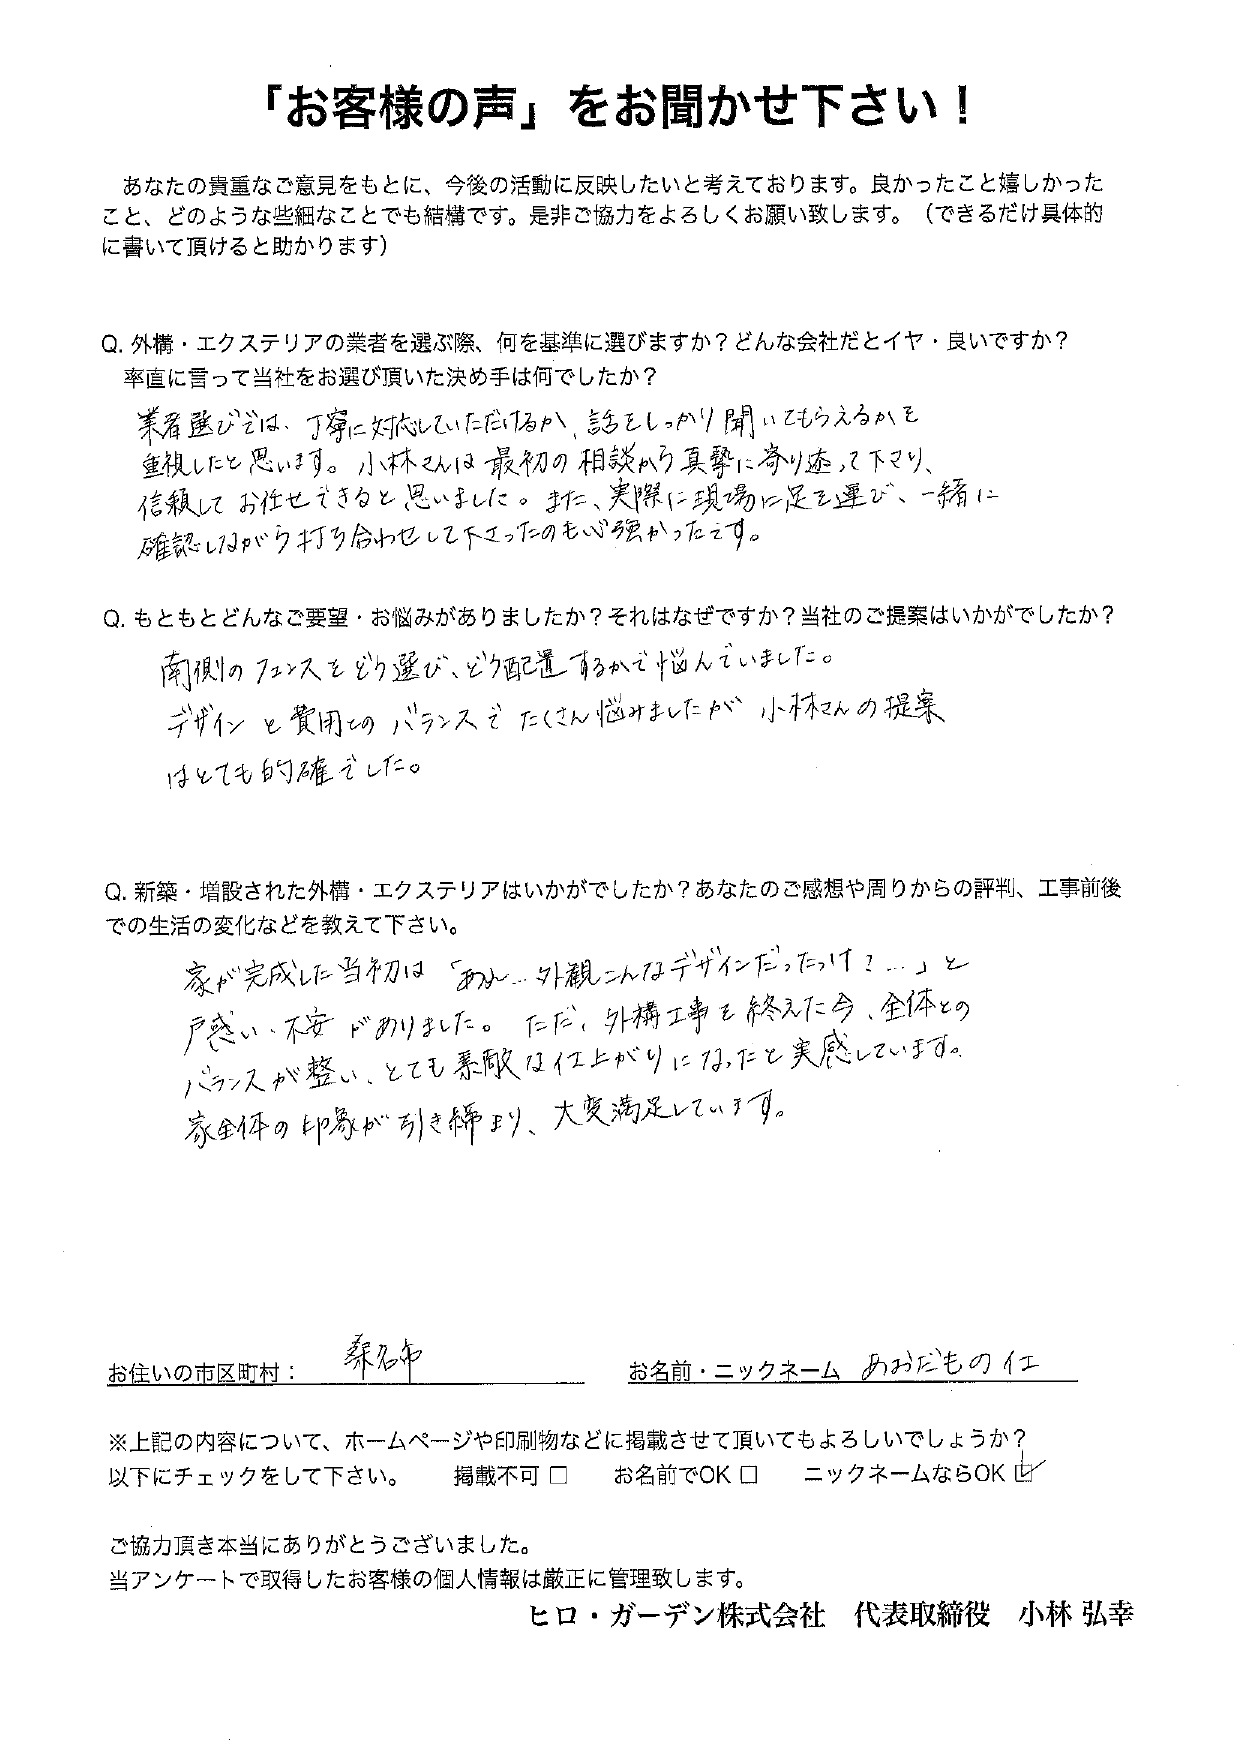 「お客様の声」をお聞かせ下さい！
あなたの貴重なご意見をもとに、今後の活動に反映したいと考えております。良かったこと嬉しかった
こと、どのような些細なことでも結構です。是非ご協力をよろしくお願い致します。（できるだけ具体的
に書いて頂けると助かります）
Q. 外構・エクステリアの業者を選ぶ際、何を基準に選びますか？どんな会社だとイヤ・良いですか？
率直に言って当社をお選び頂いた決め手は何でしたか？
業者選びでは、丁寧に対応していただけるか、話をしっかり聞いてもらえるかを
重視したと思います。小林さんは最初の相談から真摯に寄り添って下さり、
信頼してお任せできると思いました。また、実際に現場に足を運び、一緒に
確認しながら打ち合わせして下さったのも心強かったです。
Q. もともとどんなご要望・お悩みがありましたか？それはなぜですか？当社のご提案はいかがでしたか？
南側のフェンスをどう選び、どう配置するかで悩んでいました。
デザインと費用とのバランスでたくさん悩みましたが小林さんの提案
はとても的確でした。
Q. 新築・増設された外構・エクステリアはいかがでしたか？あなたのご感想や周りからの評判、工事前後
での生活の変化などを教えて下さい。
家が完成した当初は「あれ…外観こんなデザインだったっけ？…」と
戸惑い、不安がありました。ただ、外構工事を終えた今、全体との
バランスが整い、とても素敵な仕上がりになったと実感しています。
家全体の印象が引き締まり、大変満足しています。
お住いの市区町村： 桑名市 お名前・ニックネーム あおだもの圧
※上記の内容について、ホームページや印刷物などに掲載させて頂いてもよろしいでしょうか？
以下にチェックをして下さい。 掲載不可 □ お名前でOK □ ニックネームならOK ☑
ご協力頂き本当にありがとうございました。
当アンケートで取得したお客様の個人情報は厳正に管理致します。
ヒロ・ガーデン株式会社 代表取締役 小林 弘幸